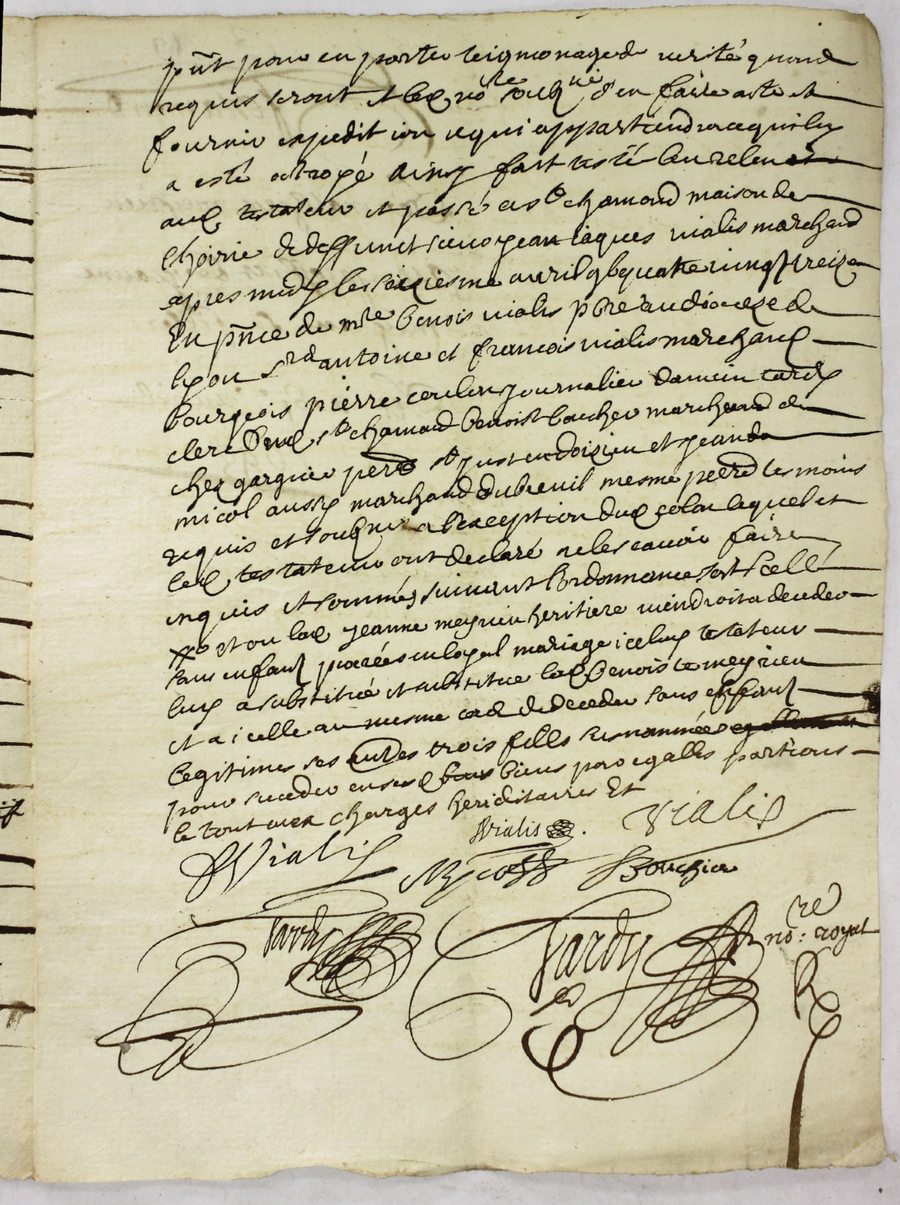 pnt pour en porter teigmonage de verité quand
requis seront et led no.re soubz.né d'en faire acte et
fournir expedition a qui appartiendra ce quil luy
a esté octroyé ainsy fait testé leu releu
aud testateur et passé a st chamond maison de
lhoirie de deffunct sieur jean jaques vialis marchand
apres midy le seiziesme avril gbc quatre vingt treize
En pnce de mre benois vialis pbre au dioceze de
lyon srs antoine et francois vialis marchand
bourgeois pierre journalier damein tardy
clerc dud st chamond benoist boucher marchand de
chez gargnier perre st just en doizieu et jean
micol aussy marchand du breuil mesme perre tesmoins
requis et soubznés a l'exception dud lequel et
led testateur ont declaré ne le scavoir faire
enquis et sommés suivant l'ordonnance soit scellé
et ou lad jeanne meyrieu heritiere viendroit a deceder
sans enfant procréés en loyal mariage icelluy testateur
luy a substitué et substitue lad benoiste meyrieu
et a icelle au mesme cas de deceder sans enfant
legitimes ses autres trois filles sus nommées
pour succeder en sesd biens par egalles partions
le tout avec charges hereditaires Et
Vialis Vialis
Vialis Micol Bouchier
Tardy Tardy no.re royal
R